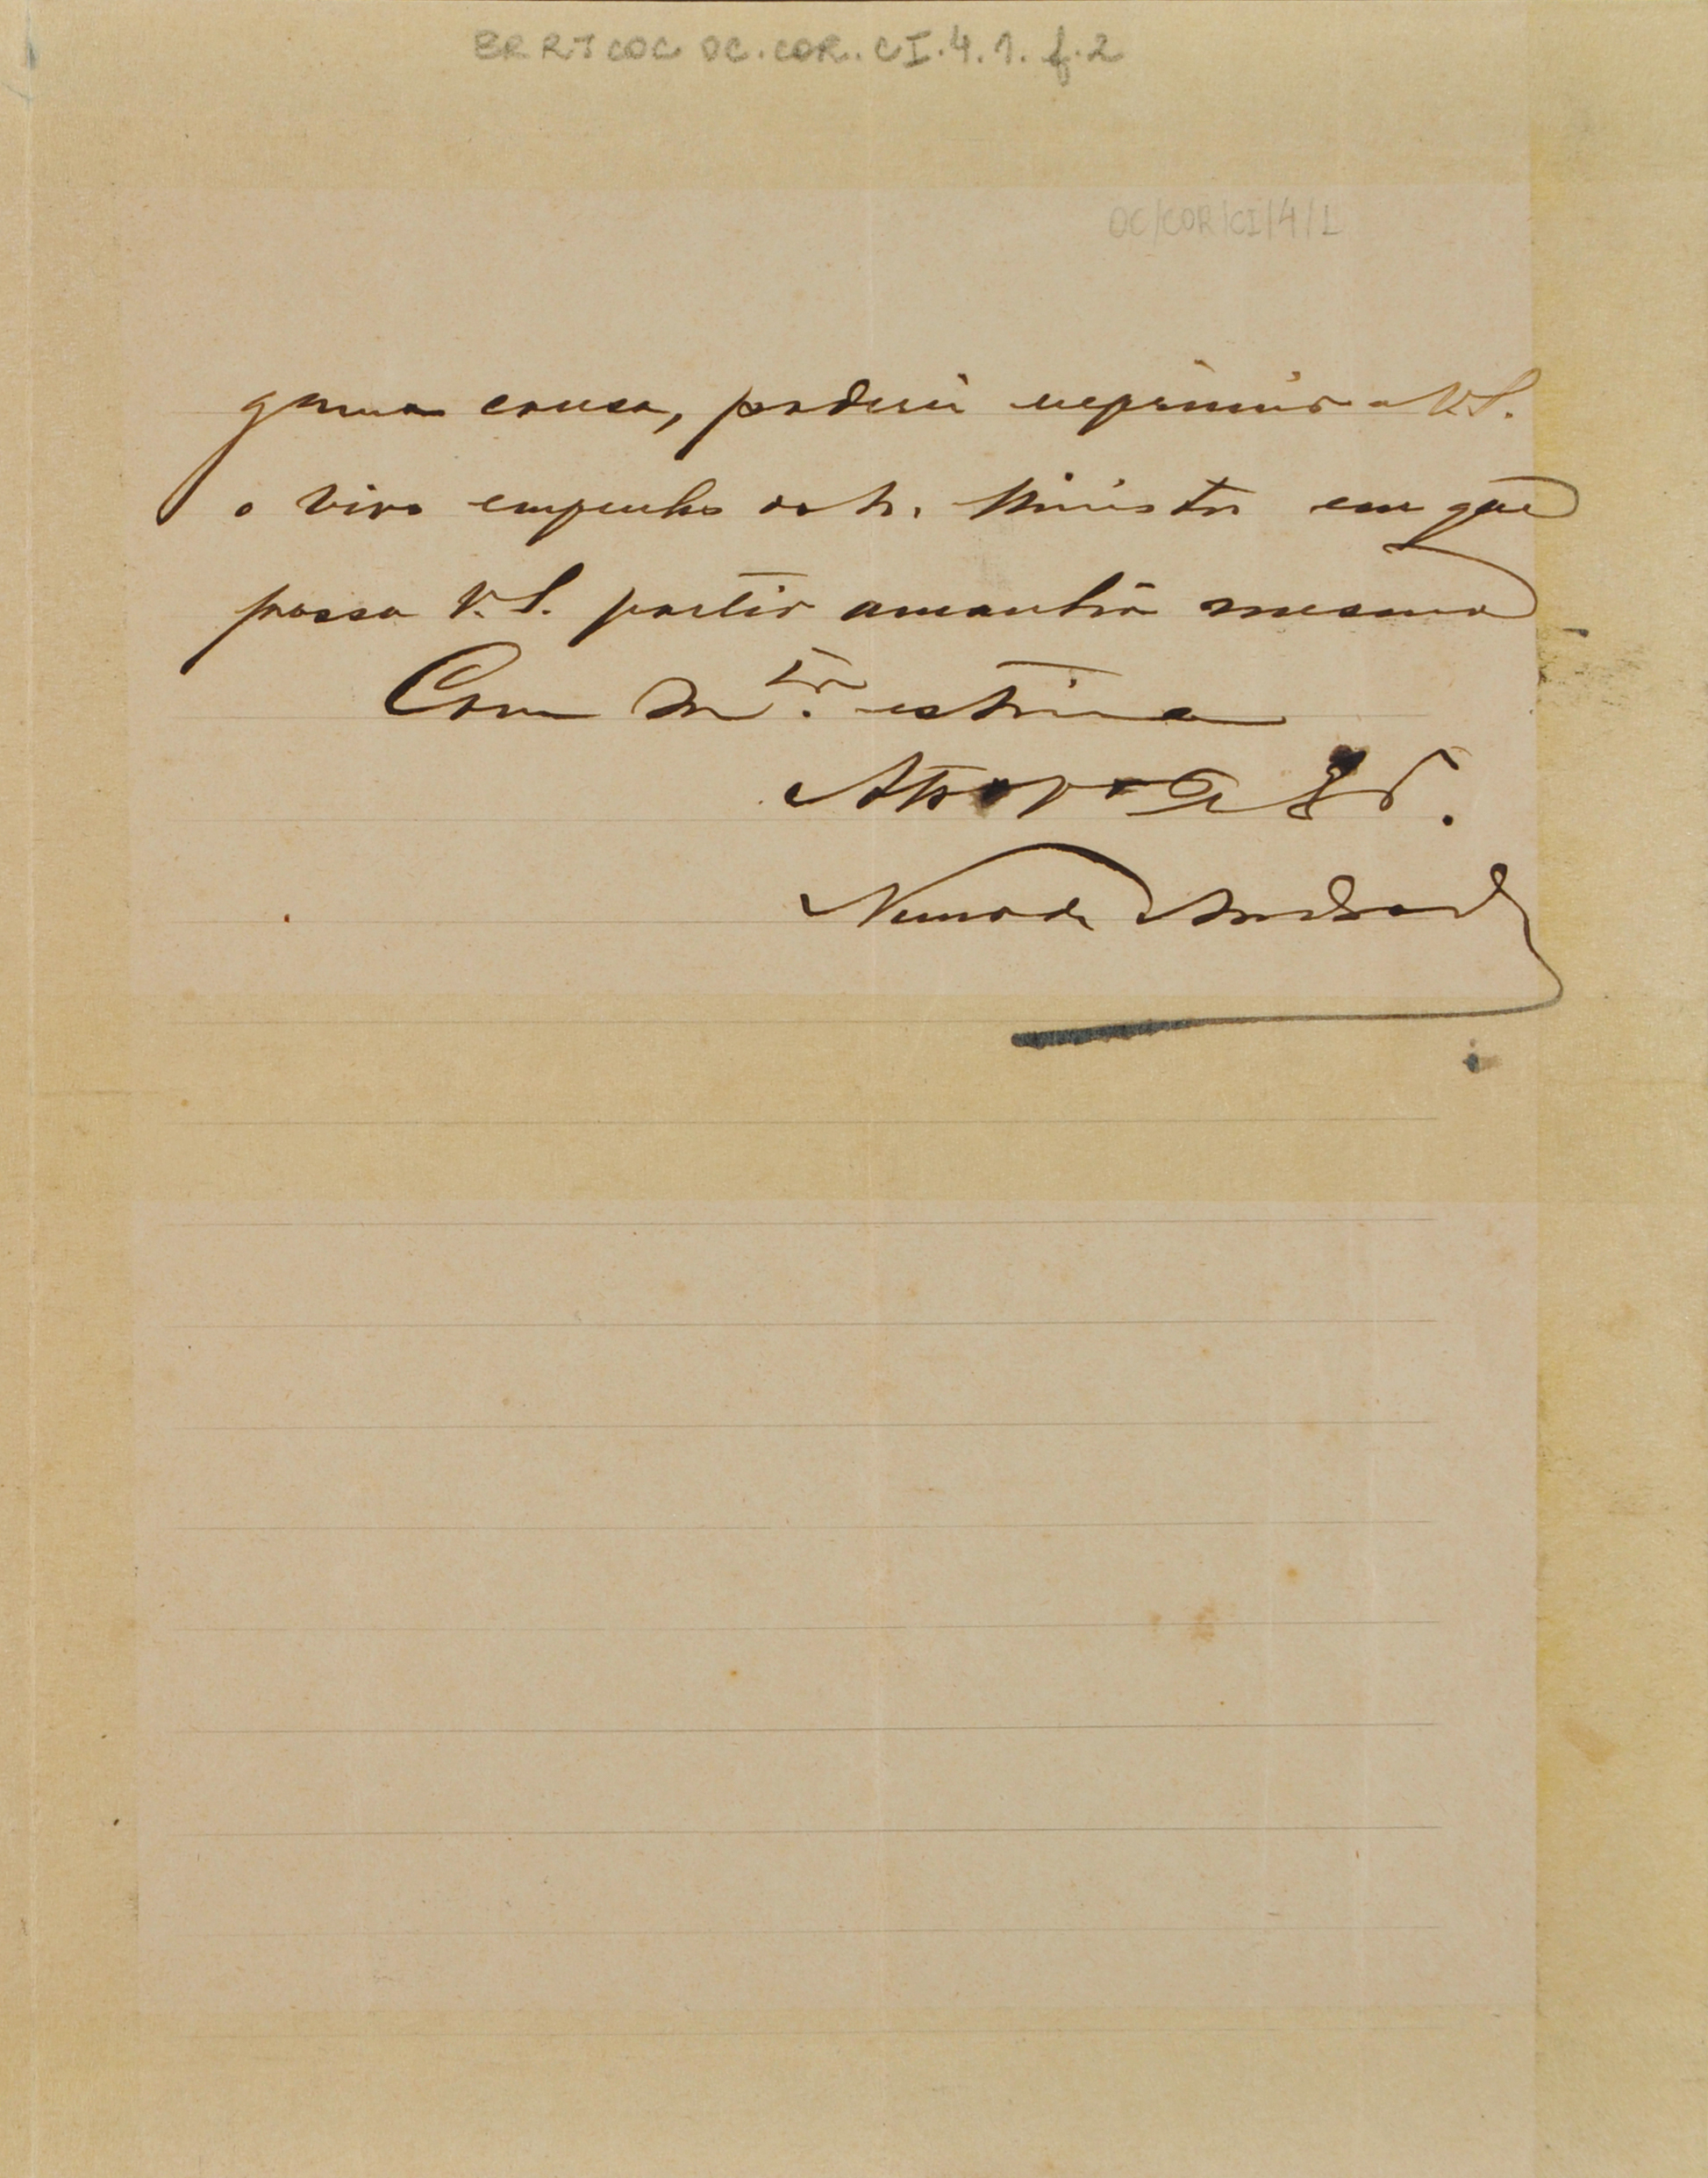 BR RJ COC OC.COR.CI.4.1. f.2
OC/COR/CI/4/1
guma cousa, poderei exprimir a V.S.
o vivo empenho do Sr. Ministro em que
possa V.S. partir amanhã mesmo
Com m.ta estima
Nuno de Andrade